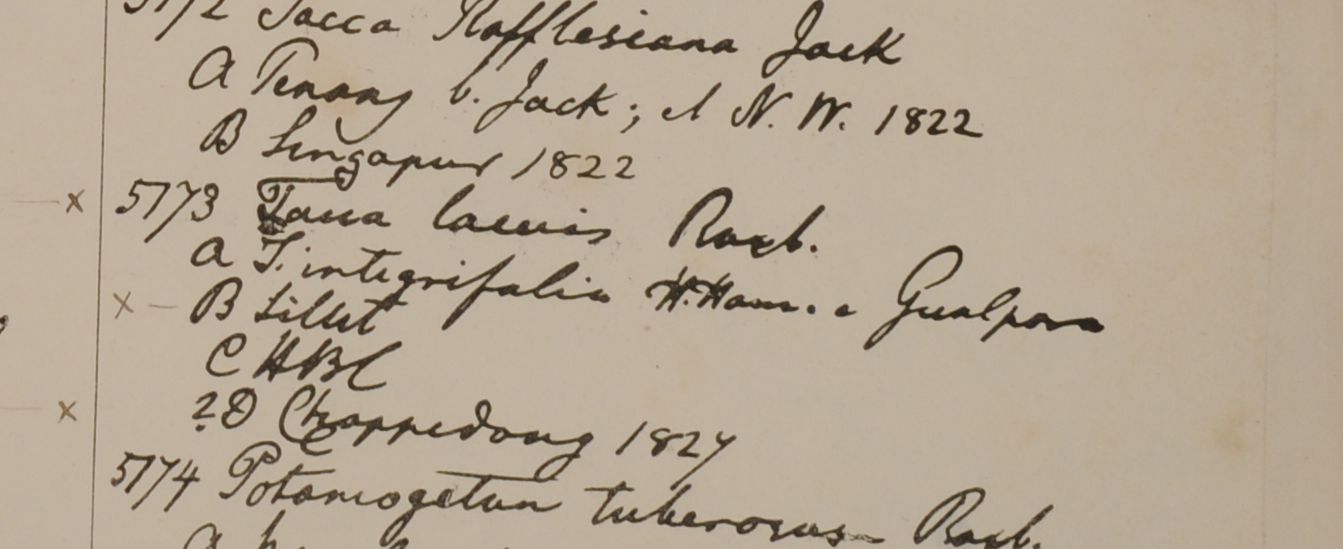 5172 Tacca Rafflesiana Jack
A Penang b. Jack; N. W. 1822
B Singapur 1822
x 5173 Tacca laevis Roxb.
A T. integrifolia H. Ham. e Gualpara
x B Sillet
C HBC
x ? D Chappedong 1827
5174 Potamogeton tuberosus Roxb.